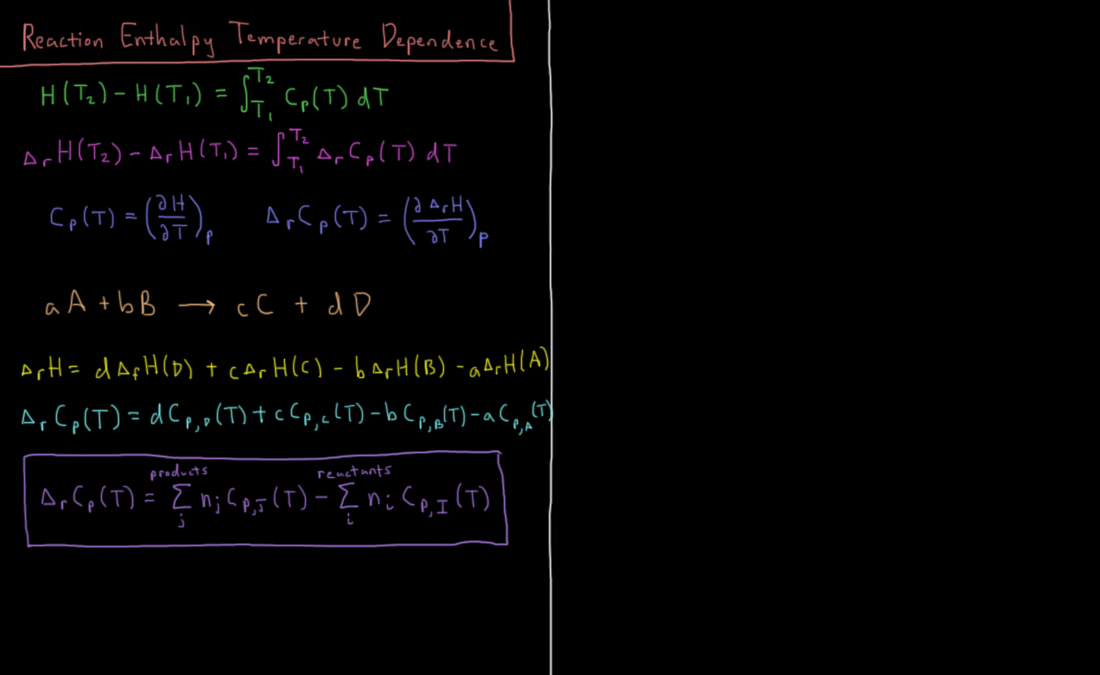 Reaction Enthalpy Temperature Dependence
H(T₂) − H(T₁) = ∫_{T₁}^{T₂} C_p(T) dT
Δ_rH(T₂) − Δ_rH(T₁) = ∫_{T₁}^{T₂} Δ_rC_p(T) dT
C_p(T) = (∂H/∂T)_p    Δ_rC_p(T) = (∂Δ_rH/∂T)_p
aA + bB → cC + dD
Δ_rH = dΔ_fH(D) + cΔ_rH(C) − bΔ_rH(B) − aΔ_rH(A)
Δ_rC_p(T) = dC_{p,D}(T) + cC_{p,C}(T) − bC_{p,B}(T) − aC_{p,A}(T)
products reactants
Δ_rC_p(T) = Σ_j n_j C_{p,J}(T) − Σ_i n_i C_{p,I}(T)